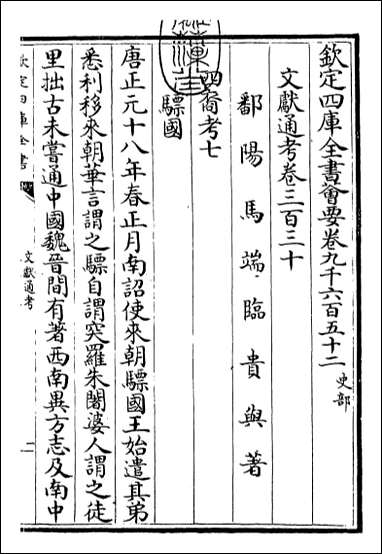 欽定四庫全書會要卷九千六百五十二 史部
文獻通考卷三百三十
鄱陽馬端臨貴與著
四裔考七
驃國
唐正元十八年春正月南詔使來朝驃國王始遣其弟
悉利移來朝華言謂之驃自謂突羅朱闍婆人謂之徒
里拙古未嘗通中國魏晉間有著西南異方志及南中
欽定四庫全書
文獻通考
一